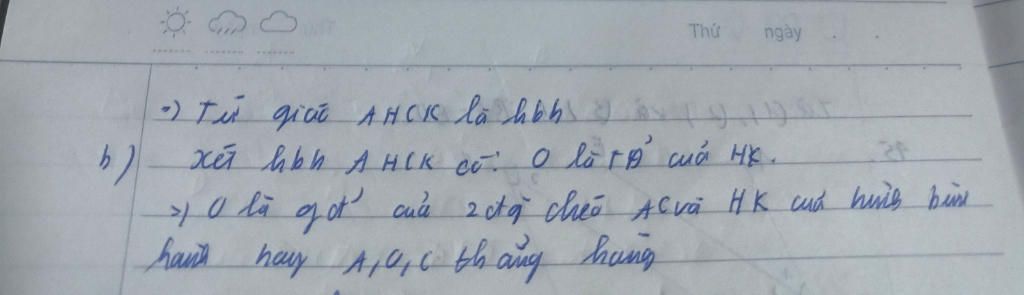 Thứ ngày . .
=> Tứ giác AHCK là hbh
b) Xét hbh AHCK có: O là TĐ' của HK.
=> O là gđ' của 2 đg chéo AC và HK của hình bình
hành hay A, O, C thẳng hàng